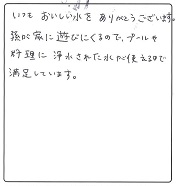 いつも おいしい水を ありがとうございます。
孫が家に遊びにくるので、プールや
料理に 浄水された水が使えるので
満足しています。